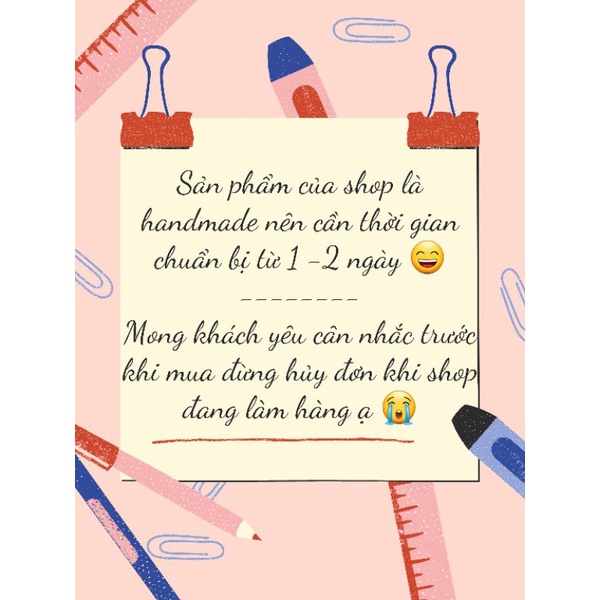 Sản phẩm của shop là
handmade nên cần thời gian
chuẩn bị từ 1 -2 ngày 😄
--------
Mong khách yêu cân nhắc trước
khi mua đừng hủy đơn khi shop
đang làm hàng ạ 😭